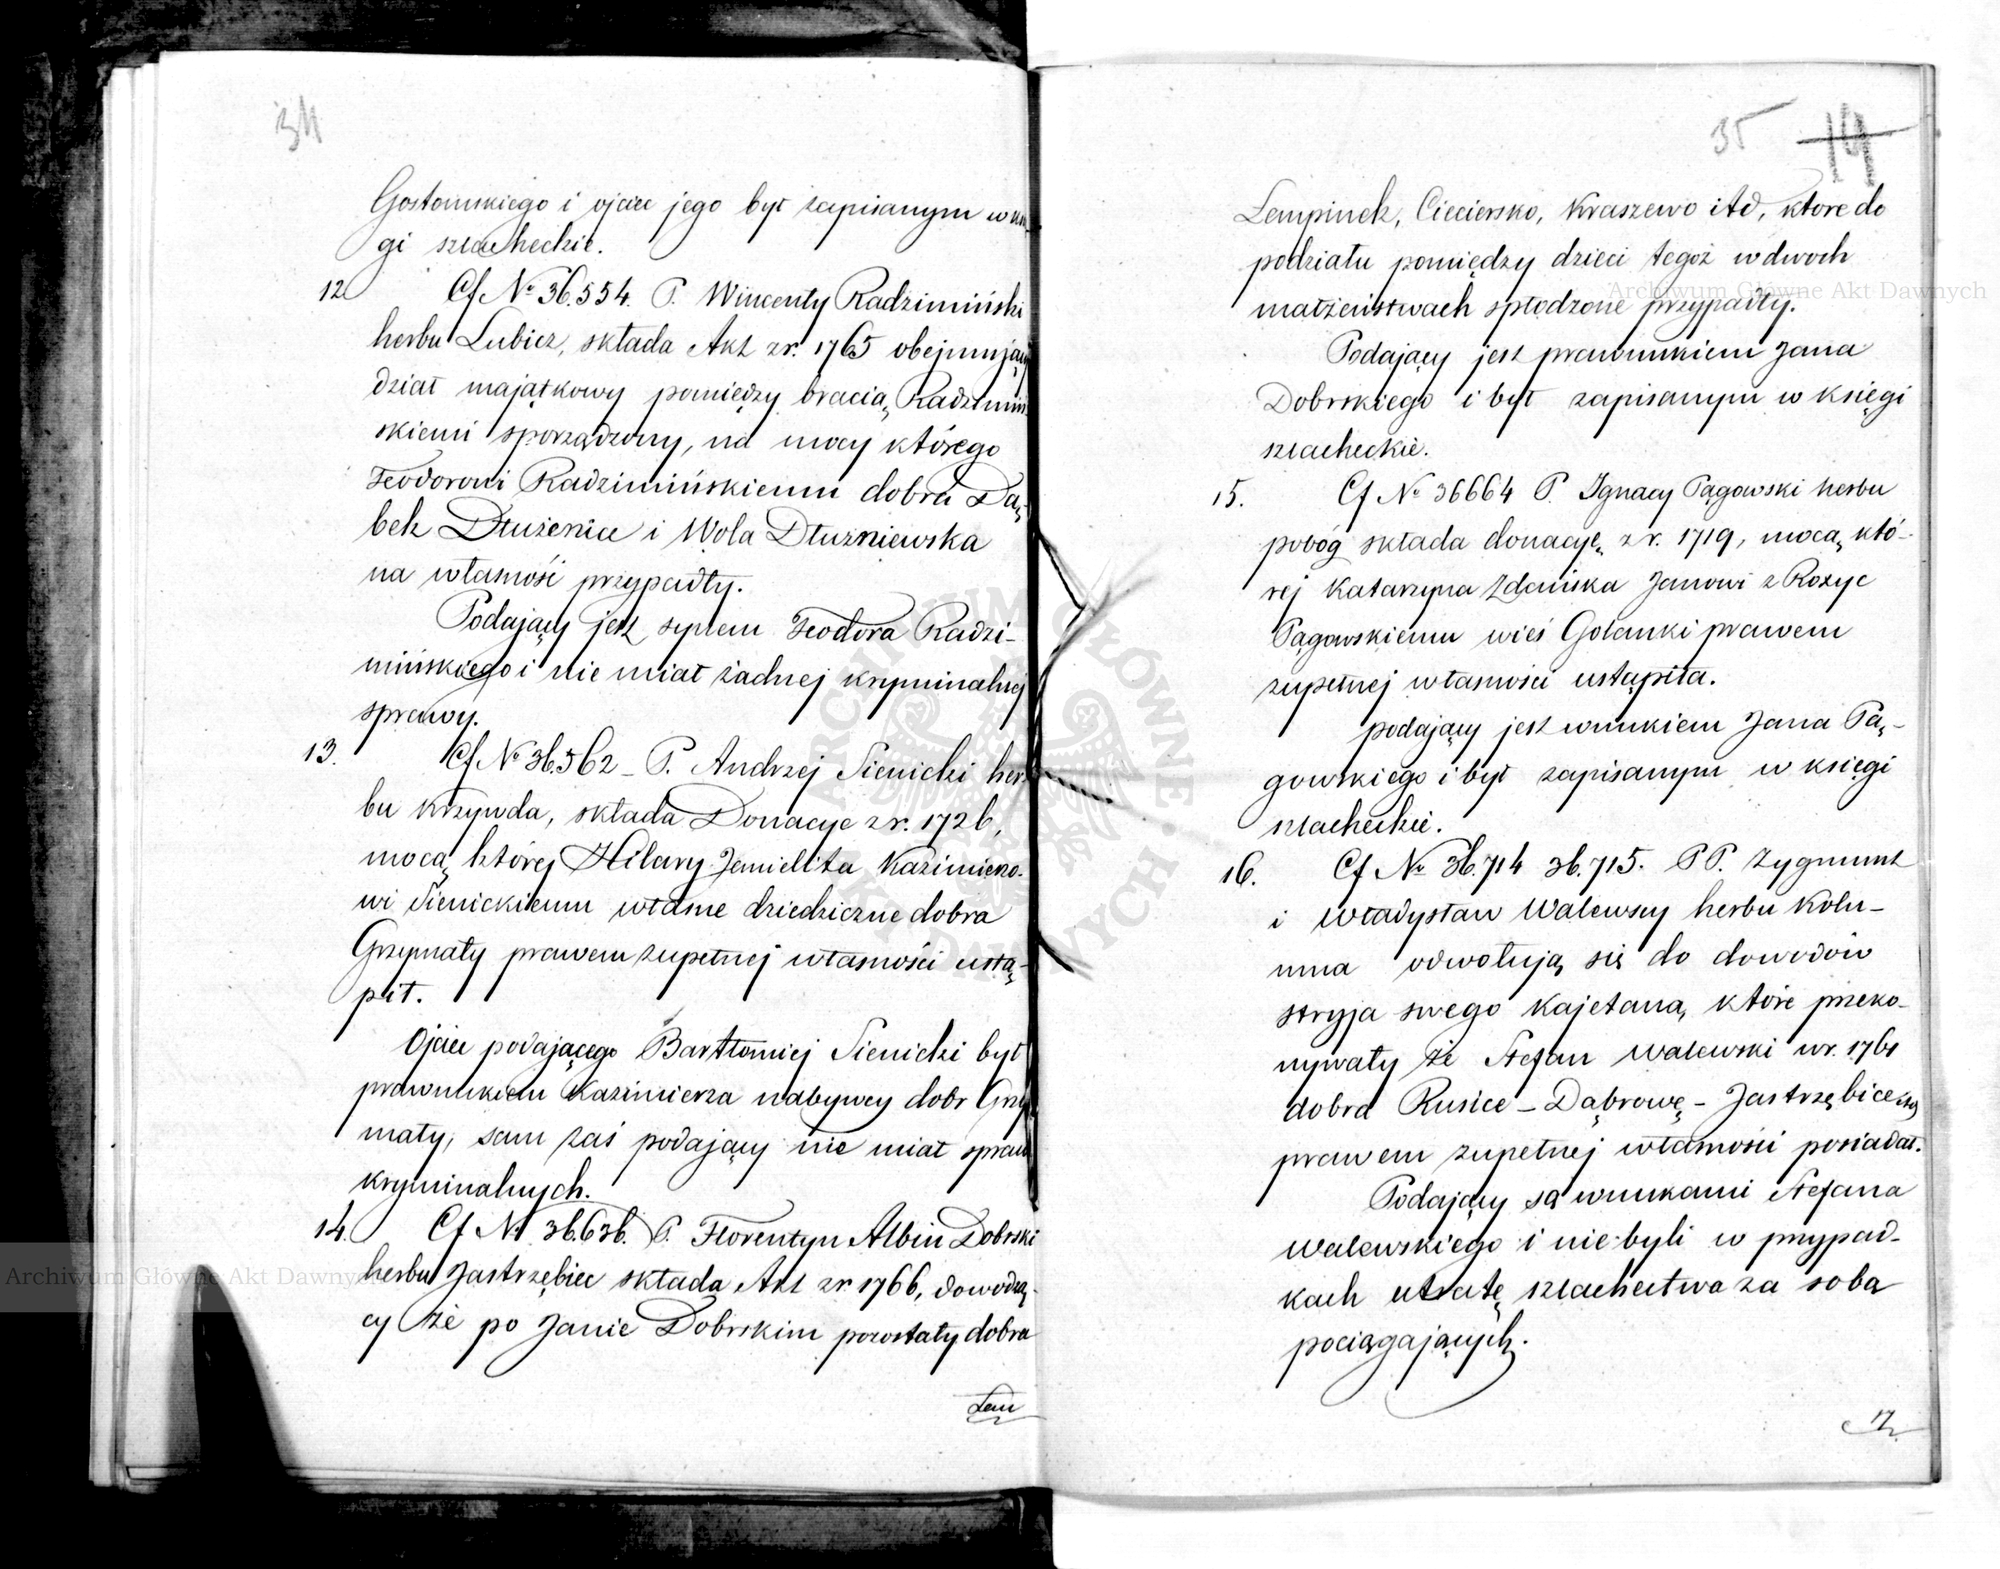 34
Gostomskiego i ojciec jego był zapisanym w xię
gi szlacheckie.
12 Cf № 36.554. P. Wincenty Radzimiński
herbu Lubicz, składa Akt z r. 1765 obejmujący
dział majątkowy pomiędzy bracią Radzimiń
skiemi sporządzony, na mocy którego
Teodorowi Radzimińskiemu dobra Dą
bek Dłużenice i Wola Dłużniewska
na własność przypadły.
Podający jest synem Teodora Radzi-
mińskiego i nie miał żadnej kryminalnej
sprawy.
13. Cf № 36.562 - P. Andrzej Sienicki her
bu Krzywda, składa Donacye z r. 1726,
mocą której Hilary Jemielita Kazimierzo-
wi Sienickiemu własne dziedziczne dobra
Grzymały prawem zupełnej własności ustą-
pił.
Ojciec podającego Bartłomiej Sienicki był
prawnukiem Kazimierza nabywcy dobr Grzy
mały, sam zaś podający nie miał spraw
kryminalnych.
14. Cf № 36.636. P. Florentyn Albin Dobrski
herbu Jastrzębiec składa Akt z r. 1766, dowodzą-
cy że po Janie Dobrskim pozostały dobra
Lem
Archiwum Główne Akt Dawnych
35 14
Lempinek, Cieciersko, Kraszewo itd, ktore do
podziału pomiędzy dzieci tegoż w dwoch
małżeństwach spłodzone przypadły.
Archiwum Główne Akt Dawnych
Podający jest prawnukiem Jana
Dobrskiego i był zapisanym w księgi
szlacheckie.
15. Cf № 36664 P. Ignacy Pągowski herbu
pobóg składa donacyę z r. 1719, mocą któ-
rej Katarzyna Zdańska Janowi z Rożyc
Pągowskiemu wieś Golanki prawem
zupełnej własności ustąpiła.
podający jest wnukiem Jana Pą-
gowskiego i był zapisanym w księgi
szlacheckie.
16. Cf № 36.714 36.715. PP. Zygmunt
i Władysław Walewscy herbu Kolu-
mna odwołują się do dowodów
stryja swego Kajetana, które przeko-
nywały że Stefan Walewski w r. 1761
dobra Rusice - Dąbrowę - Jastrzębice
prawem zupełnej własności posiadał.
Podający są wnukami Stefana
Walewskiego i nie byli w przypad-
kach utratę szlachectwa za sobą
pociągających.
17.
ARCHIWUM GŁÓWNE AKT DAWNYCH